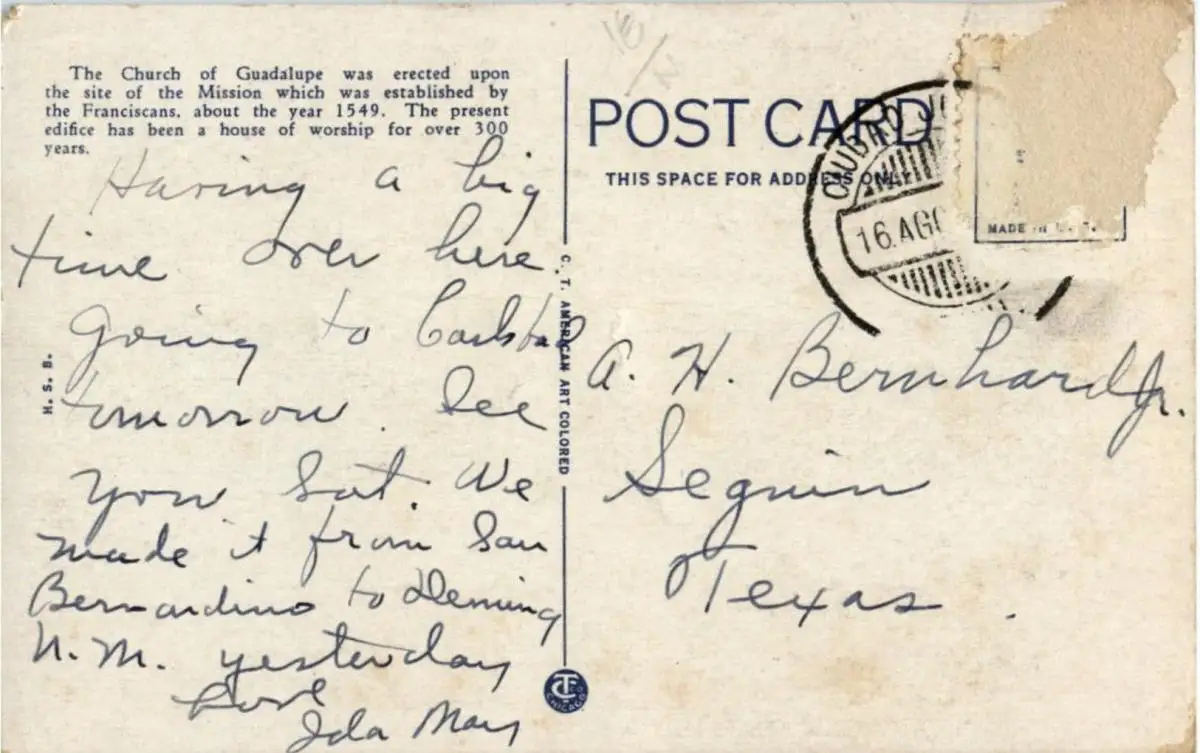 The Church of Guadalupe was erected upon
the site of the Mission which was established by
the Franciscans, about the year 1549. The present
edifice has been a house of worship for over 300
years.
Having a big
time over here.
Going to Carlsbad
tomorrow. See
you Sat. We
made it from San
Bernardino to Deming
N.M. yesterday
Love
Ida May
H. S. B.
C. T. AMERICAN ART COLORED
CHICAGO
POST CARD
THIS SPACE FOR ADDRESS ONLY
16 AGO
MADE IN U.S.A.
A. H. Bernhard Jr.
Seguin
Texas.